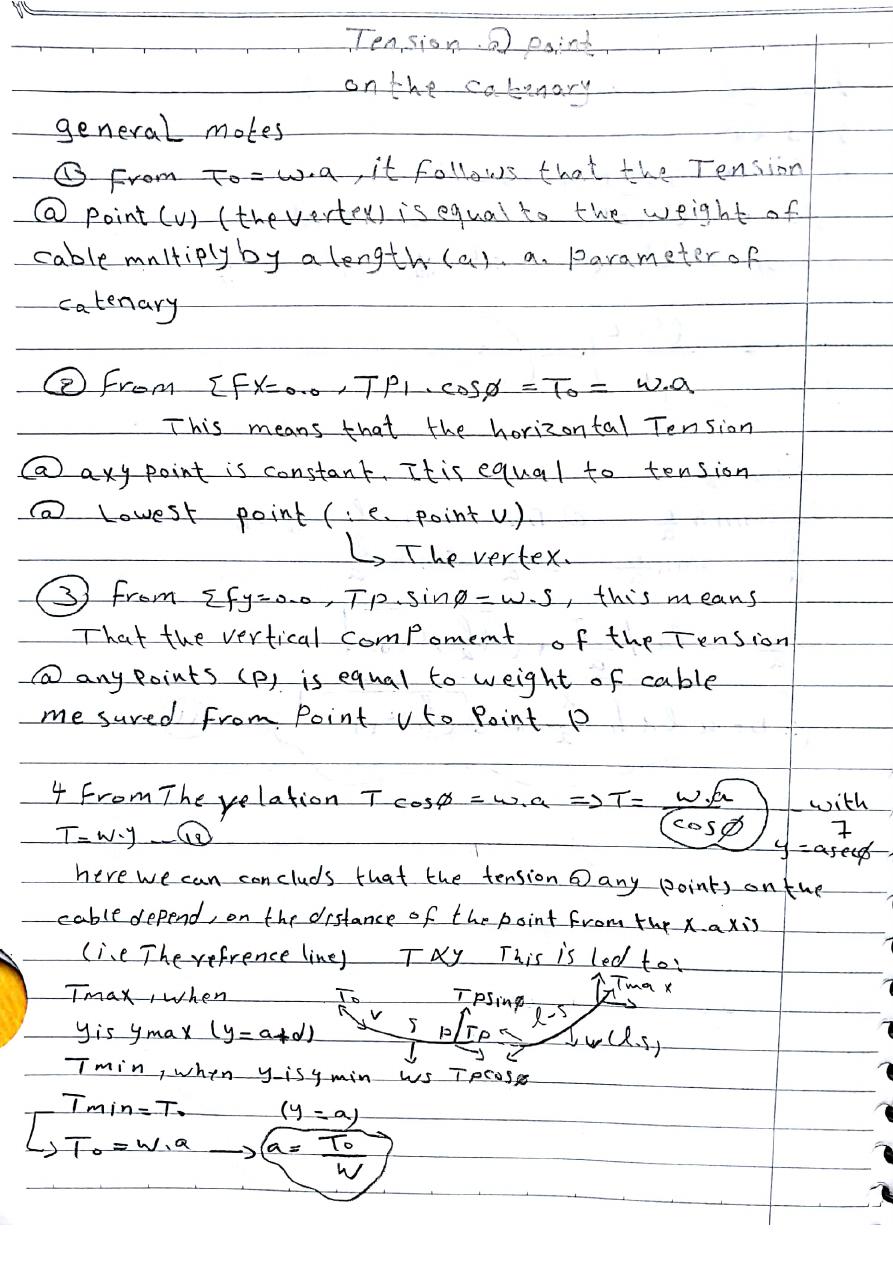 Tension @ point
on the catenary
general notes
① From To = w.a, it follows that the Tension
@ point (v) (the vertex) is equal to the weight of
cable multiply by a length (a). a. parameter of
catenary
② From ΣFX=0.0, TP1.cosø = To = w.a
This means that the horizontal Tension
@ axy point is constant. It is equal to tension
@ Lowest point (i.e. point v)
↳ The vertex.
③ From Σfy=0.0, Tp.sinø = w.s, this means
That the vertical compoment of the Tension
@ any points (p) is equal to weight of cable
mesured from Point v to Point p
4 From The relation T cosø = w.a => T = w.a / cosø with
T=w.y — ⑫ y = asecø
here we can concluds that the tension @ any points on the
cable depend, on the distance of the point from the x.axis
(i.e The refrence line) T ∝ y This is led to:
Tmax, when To Tpsinø l-s Tmax
y is ymax (y=a+d) v s p Tp w(l.s)
Tmin, when y is ymin ws Tpcosø
Tmin = To (y = a)
↳ To = w.a → a = To / w